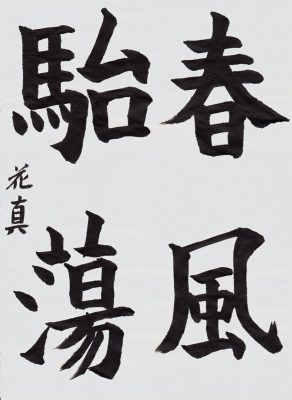 春風
駘蕩
花真